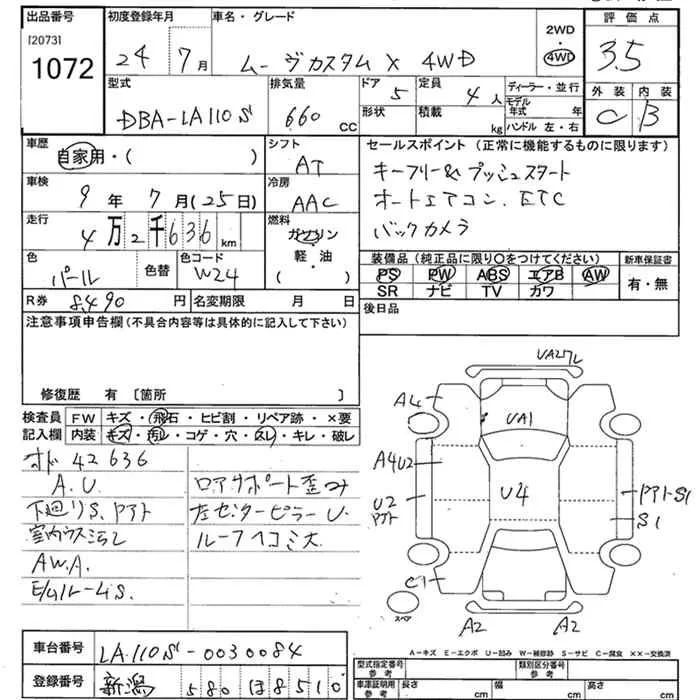 出品番号 初度登録年月 車名・グレード 評価点
[2073] 1072 24年 7月 ムーヴカスタム X 4WD 2WD 4WD 3.5
型式 排気量 ドア 定員 ディーラー・並行 外装 内装
DBA-LA110S 660 CC 5 4人 モデル年式 年 C B
形状 積載 kg ハンドル 左・右
車歴 シフト セールスポイント (正常に機能するものに限ります)
自家用・( ) AT キーフリー&プッシュスタート
車検 冷房 オートエアコン、ETC
9年 7月(25日) AAC バックカメラ
走行 燃料
4万2千636km ガソリン 軽・油 ( )
装備品 (純正品に限り○をつけてください) 新車保証書
色 色替 色コード PS PW ABS エアB AW 有・無
パール W24 SR ナビ TV カワ
R券 8,490円 名変期限 月 日 後日品
注意事項申告欄 (不具合内容等は具体的に記入して下さい)
修復歴 有 〔箇所 〕
検査員 FW キズ・飛石・ヒビ割・リペア跡・×要
記入欄 内装 キズ・汚レ・コゲ・穴・スレ・キレ・破レ
オド 42636
A.U. ロアサポート歪み
下廻りS.Pアト 左センターピラーU.
室内ウス汚レ ルーフヘコミ大
A.W.A.
E/ルームS.
UA27L
A4 UA1
A4U2
U2 Pアト U4 PアトS1
S1
C1
スペア A2 A2
A-キズ E-エクボ U-凹み W-補修跡 S-サビ C-腐食 ××-交換済
車台番号 LA110S-0030084 型式指定番号 参考 類別区分番号 参考
登録番号 新潟 580 ほ 8510 車庫証明用 参考 長さ cm 幅 cm 高さ cm